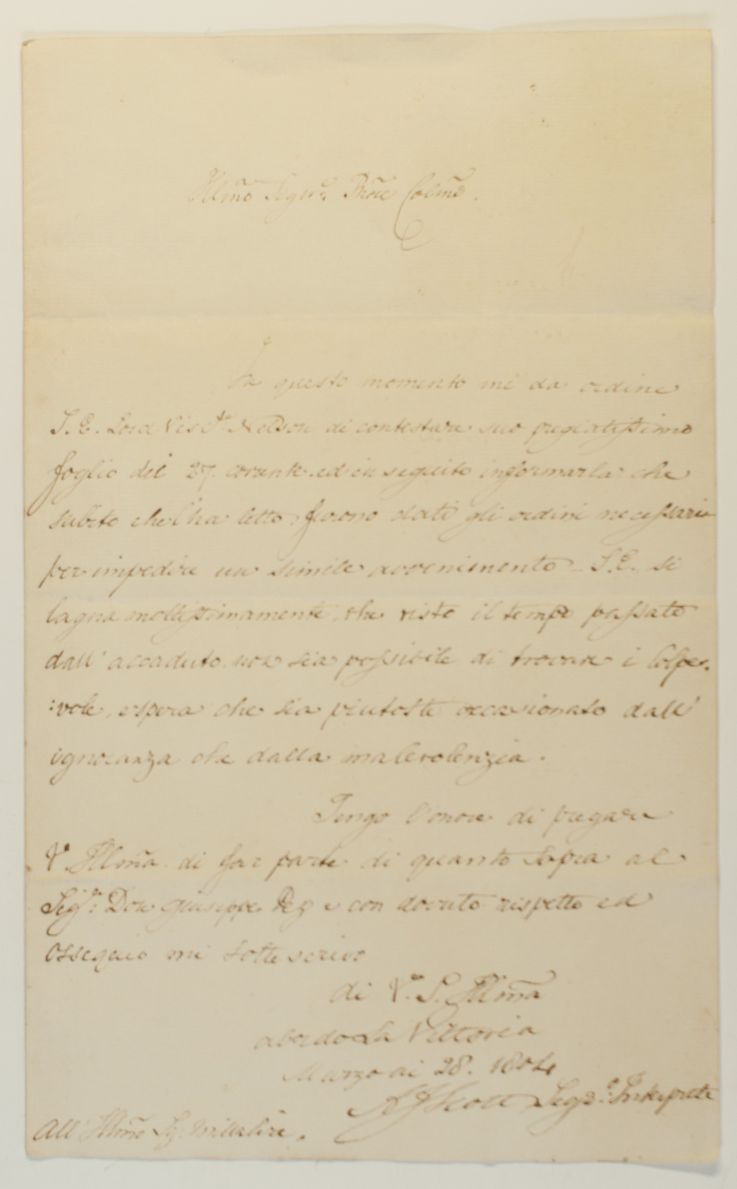 Illmo Sigre Prōe Colmo.
In questo momento mi da ordine
S.E. Lord Visct. Nelson di contestare suo pregiatissimo
foglio del 27 corunte ed in seguito informarla che
subito che l'ha letto, furono dati gli ordini necessarie
per impedire un simile avvenimento – S.E. si
lagna moltissimamente, che visto il tempo passato
dall' accaduto non sia possibile di trovare i Colpe-
:vole, espera che sia piutosto occasionato dall'
ignoranza che dalla malevolenzia.
Tengo l'onore di pregare
V.a Illma. di far parte di quanto sopra al
Sigr: Don Giuseppe e con dovuto rispetto ed
Ossequio mi sotto scrivo
di V.a S. Illma
abordo la Vittoria
Marzo ai 28. 1804
AJScott Segro. Interprete
All' Illmo Sigr Millelire.